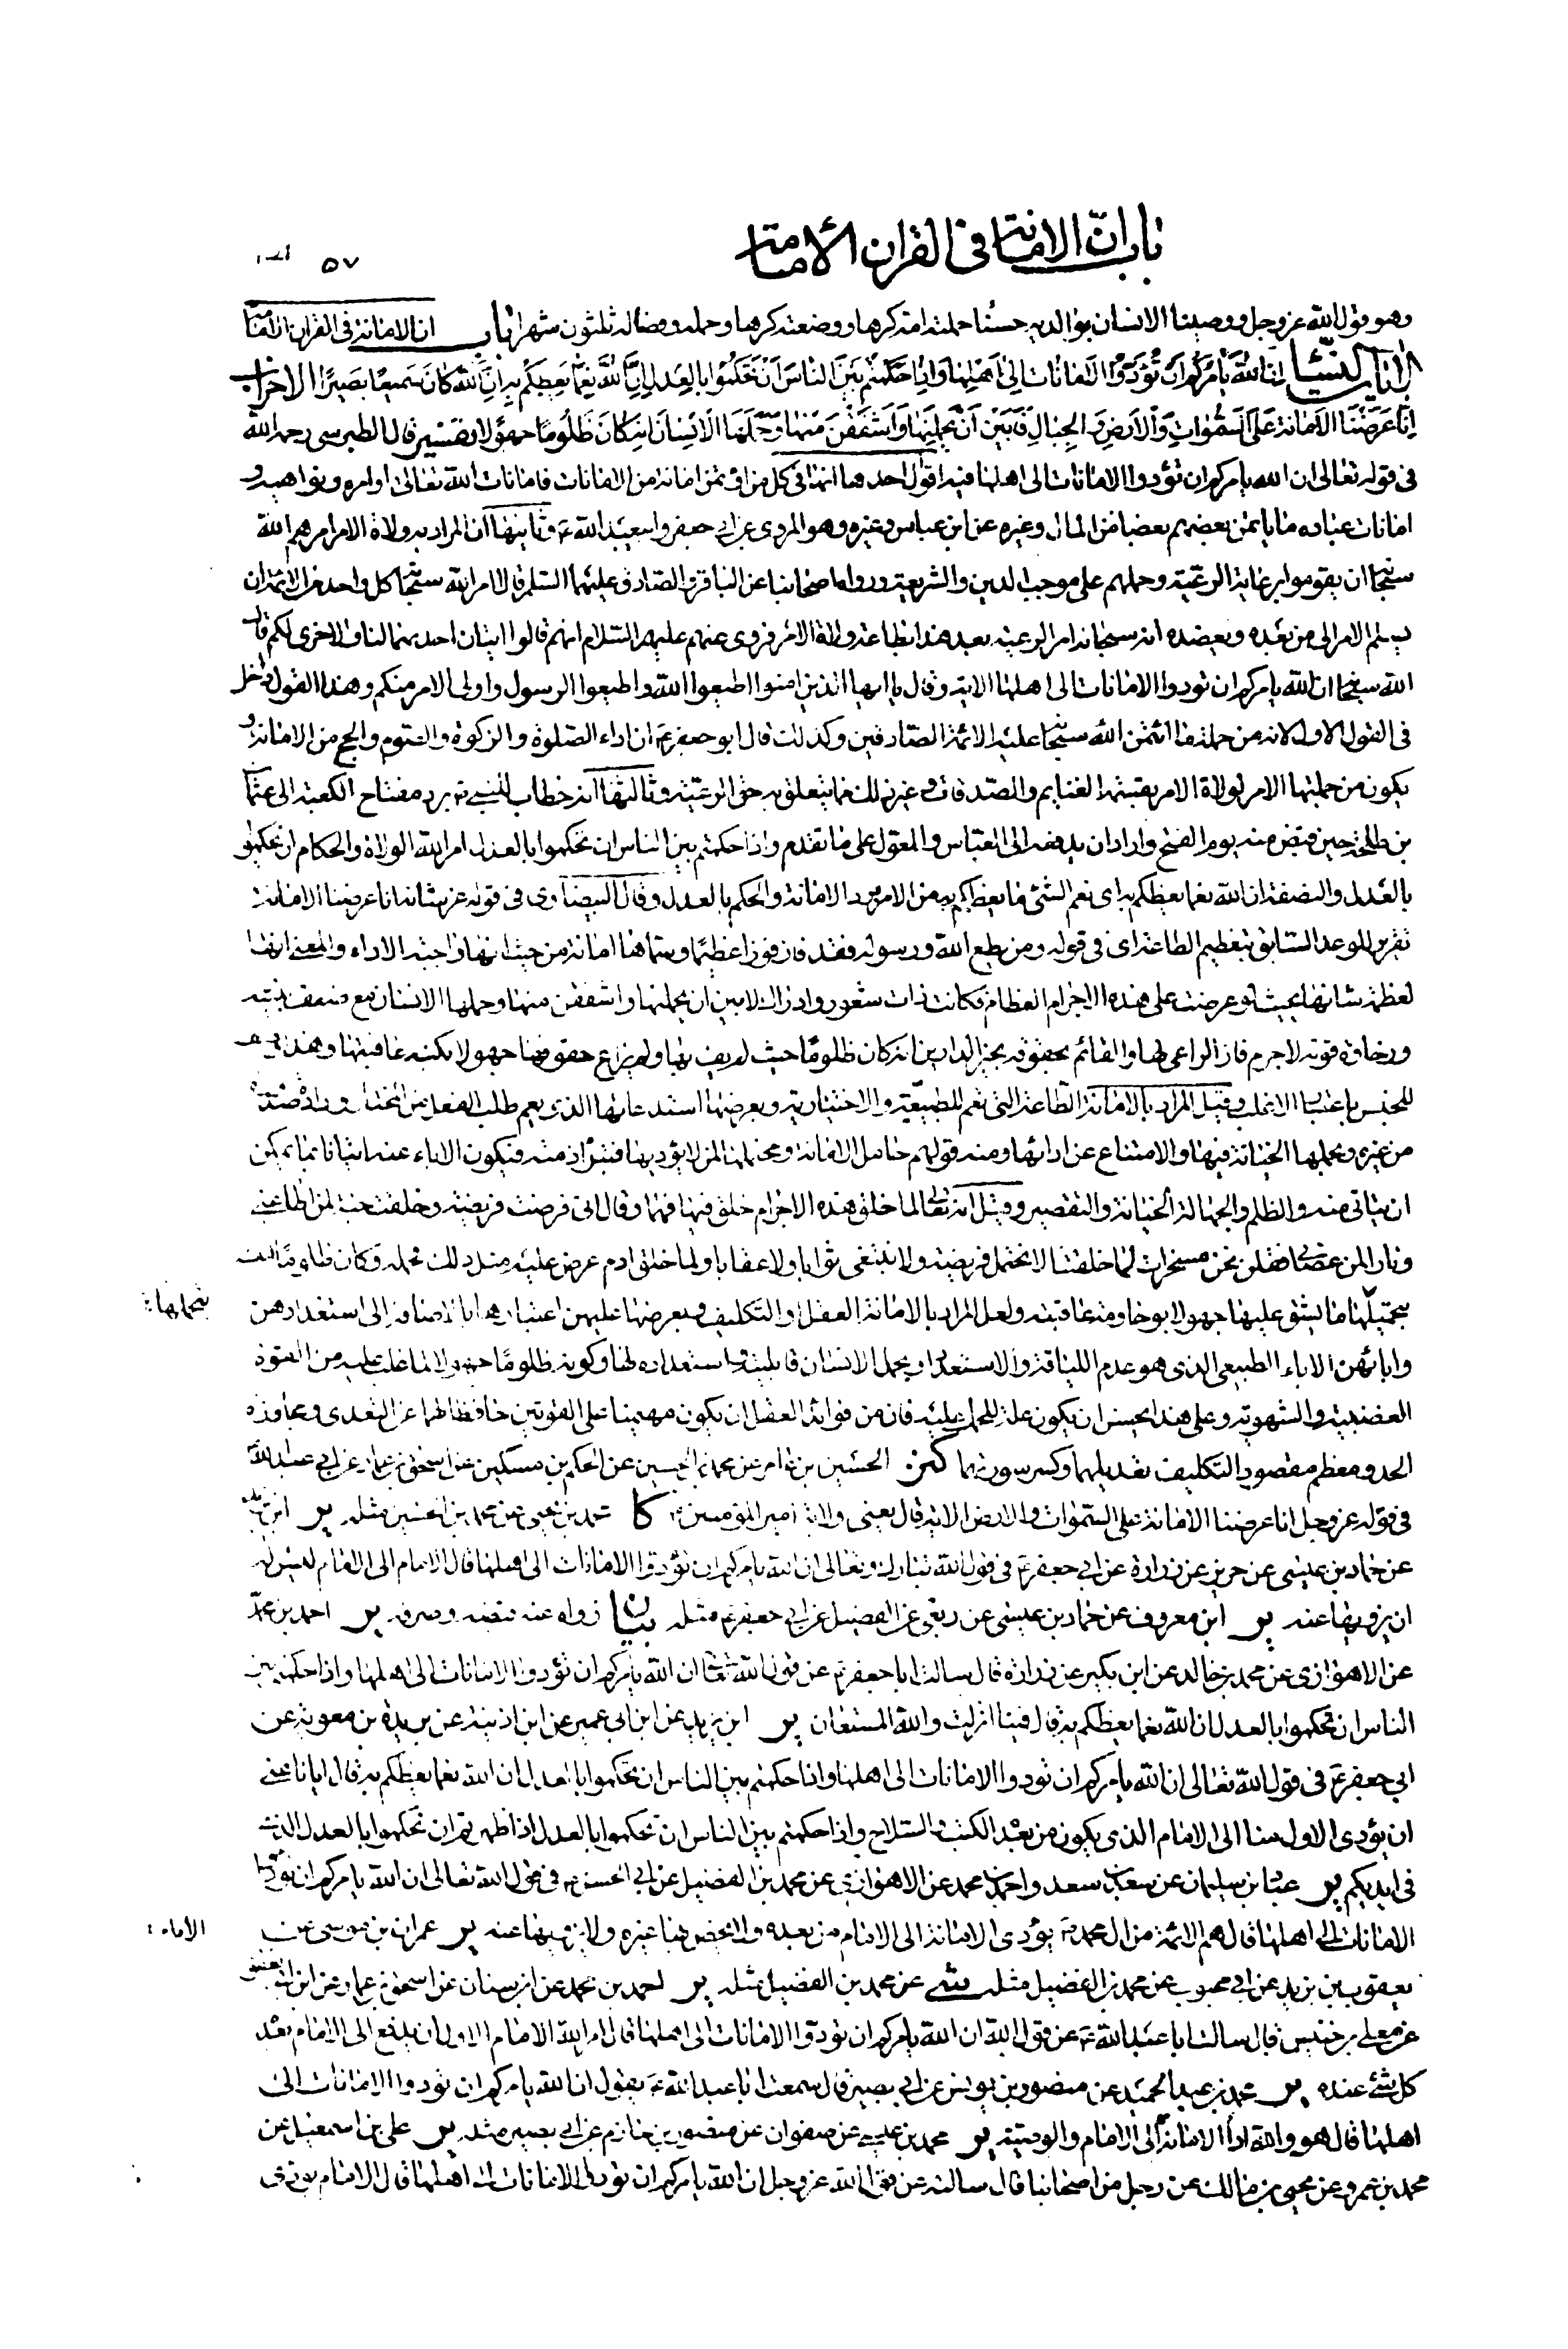 باب انّ الامانة فى القران الامامة
٥٧
وهو قول الله عز وجل ووصينا الانسان بوالديه حسنا حملته امه كرها ووضعته كرها وحمله وفصاله ثلثون شهرا باب ان الامانة فى القران الامامة
الايات النساء ان الله يأمركم ان تؤدوا الامانات الى اهلها واذا حكمتم بين الناس ان تحكموا بالعدل ان الله نعما يعظكم به ان الله كان سميعا بصيرا الاحزاب
انا عرضنا الامانة على السموات والارض والجبال فابين ان يحملنها واشفقن منها وحملها الانسان انه كان ظلوما جهولا تفسير قال الطبرسى رحمه الله
فى قوله تعالى ان الله يامركم ان تؤدوا الامانات الى اهلها فيه اقوال احدها انها فى كل من اؤتمن امانة من الامانات فامانات الله تعالى اوامره ونواهيه و
امانات عباده ما يأتمن بعضهم بعضا من المال وغيره عن ابن عباس وغيره وهو المروى عن ابى جعفر وابيعبد الله ع وثانيها ان المراد به ولاة الامر امرهم الله
سبحانه ان يقوموا برعاية الرعية وحملهم على موجب الدين والشريعة ورواه اصحابنا عن الباقر والصادق عليهما السلم قالا امر الله سبحانه كل واحد من الائمة ان
يسلم الامر الى من بعده ويعضده انه سبحانه امر الرعية بعد هذا بطاعة ولاة الامر فروى عنهم عليهم السلام انهم قالوا ايتان احديهما لنا والاخرى لكم قال
الله سبحانه ان الله يامركم ان تودوا الامانات الى اهلها الاية وقال يا ايها الذين امنوا اطيعوا الله واطيعوا الرسول واولى الامر منكم وهذا القول داخل
فى القول الاول لانه من جملة ما ائتمن الله سبحانه عليه الائمة الصادقين وكذلك قال ابو جعفر ع ان اداء الصلوة والزكوة والصوم والحج من الامانة و
يكون من جملتها الامر لولاة الامر بقسمة الغنايم والصدقات وغير ذلك مما يتعلق به حق الرعية وثالثها انه خطاب للنبى ص برد مفتاح الكعبة الى عثمان
بن طلحة حين قبض منه يوم الفتح واراد ان يدفعه الى العباس والمعول على ما تقدم واذا حكمتم بين الناس ان تحكموا بالعدل امر الله الولاة والحكام ان يحكموا
بالعدل والنصفة ان الله نعما يعظكم به اى نعم الشئ ما يعظكم به من الامر برد الامانة والحكم بالعدل وقال البيضاوى فى قوله عز شانه انا عرضنا الامانة
تقرير للوعد السابق بتعظيم الطاعة اى فى قوله ومن يطع الله ورسوله فقد فاز فوزا عظيما وسماها امانة من حيث انها واجبة الاداء والمعنى انها
لعظمة شانها بحيث لو عرضت على هذه الاجرام العظام فكانت ذات شعور وادراك لابين ان يحملنها واشفقن منها وحملها الانسان مع ضعف بنيته
ورخاوة قوته لاجرم فاز الراعى لها والقائم بحقوقه بخير الدارين انه كان ظلوما حيث لم يف بها ولم يراع حقوقها جهولا بكنه عاقبتها وهذا وصف
للجنس باعتبار الاغلب وقيل المراد بالامانة الطاعة التى تعم الطبيعية والاختيارية وبعرضها استدعاؤها الذى يعم طلب الفعل من المختار وارادة صدوره
من غيره وبحملها الخيانة فيها والامتناع عن ادائها ومنه قولهم حامل الامانة ومحتملها لمن لا يؤديها فتبرأ ذمته فيكون الاباء عنه اتيانا بما يمكن
ان يتأتى منه والظلم والجهالة الخيانة والتقصير وقيل انه تعالى لما خلق هذه الاجرام خلق فيها فهما وقال انى فرضت فريضة وخلقت جنة لمن اطاعنى
ونارا لمن عصانى فقلن نحن مسخرات لما خلقتنا لا نحتمل فريضة ولا نبتغى ثوابا ولا عقابا ولما خلق ادم عرض عليه مثل ذلك فحمله وكان ظلوما لنفسه
بتحملها ما يشق عليها جهولا بوخامة عاقبته ولعل المراد بالامانة العقل او التكليف وبعرضها عليهن اعتبارها بالاضافة الى استعدادهن
بتحملها:
وابائهن الاباء الطبيعى الذى هو عدم اللياقة والاستعداد وبحمل الانسان قابليته واستعداده لها وكونه ظلوما جهولا لما غلب عليه من القوة
الغضبية والشهوية وعلى هذا يحسن ان يكون علة للحمل عليه فان من فوائد العقل ان يكون مهيمنا على القوتين حافظا لهما عن التعدى ومجاوزة
الحد ومعظم مقصود التكليف تعديلهما وكسر سورتهما كنز الحسين بن عامر عن محمد بن الحسين عن الحكم بن مسكين عن اسحق بن عمار عن ابى عبد الله
فى قوله عز وجل انا عرضنا الامانة على السموات والارض الاية قال يعنى ولاية امير المؤمنين ع كا محمد بن يحيى عن محمد بن الحسين مثله ير ابن يزيد
عن حماد بن عيسى عن حريز عن زرارة عن ابى جعفر ع فى قول الله تبارك وتعالى ان الله يامركم ان تؤدوا الامانات الى اهلها قال الامام الى الامام ليس له
ان يزويها عنه ير ابن معروف عن حماد بن عيسى عن ربعى عن الفضيل عن ابى جعفر ع مثله بيان زواه عنه قبضه وصرفه ير احمد بن محمد
عن الاهوازى عن محمد بن خالد عن ابن بكير عن زرارة قال سالت ابا جعفر ع عن قول الله تعالى ان الله يامركم ان تؤدوا الامانات الى اهلها واذا حكمتم بين
الناس ان تحكموا بالعدل ان الله نعما يعظكم به قال فينا انزلت والله المستعان ير ابن يزيد عن ابن ابى عمير عن ابن اذينة عن بريدة بن معوية عن
ابى جعفر ع فى قول الله تعالى ان الله يامركم ان تودوا الامانات الى اهلها واذا حكمتم بين الناس ان تحكموا بالعدل ان الله نعما يعظكم به قال ايانا عنى
ان يؤدى الاول منا الى الامام الذى يكون من بعد الكتب والسلاح واذا حكمتم بين الناس ان تحكموا بالعدل اذا ظهرتم ان تحكموا بالعدل الذى
فى ايديكم ير عباد بن سليمان عن سعد بن سعد واحمد بن محمد عن الاهوازى عن محمد بن الفضيل عن ابى الحسن ع فى قول الله تعالى ان الله يامركم ان تؤدوا
الامانات الى اهلها قال هم الائمة من ال محمد ص يؤدى الامانة الى الامام من بعده ولا يخص بها غيره ولا يزويها عنه ير عمران بن موسى عن
الامام:
يعقوب بن يزيد عن ابى محبوب عن محمد بن الفضيل مثله شى عن محمد بن الفضيل مثله ير احمد بن محمد عن ابن سنان عن اسحق بن عمار عن ابن ابى يعفور
عن معلى بن خنيس قال سالت ابا عبد الله ع عن قول الله ان الله يامركم ان تودوا الامانات الى اهلها قال امر الله الامام الاول ان يدفع الى الامام بعده
كل شئ عنده ير محمد بن عبد الحميد عن منصور بن يونس عن ابى بصير قال سمعت ابا عبد الله ع يقول ان الله يامركم ان تودوا الامانات الى
اهلها قال هو والله اداء الامانة الى الامام والوصية ير محمد بن عيسى عن صفوان عن منصور بن حازم عن ابى بصير مثله ير على بن اسمعيل عن
محمد بن عمرو عن يحيى بن مالك عن رجل من اصحابنا قال سالته عن قول الله عز وجل ان الله يامركم ان تودوا الامانات الى اهلها قال الامام يودى